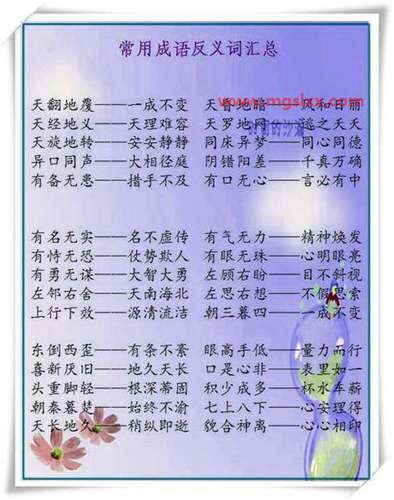 常用成语反义词汇总
天翻地覆——一成不变 天昏地暗——风和日丽
www.mgslxx.com
天经地义——天理难容 天罗地网——逃之夭夭
天旋地转——安安静静 同床异梦——同心同德
异口同声——大相径庭 阴错阳差——千真万确
有备无患——措手不及 有口无心——言必有中
有名无实——名不虚传 有气无力——精神焕发
有恃无恐——仗势欺人 有眼无珠——心明眼亮
有勇无谋——大智大勇 左顾右盼——目不斜视
左邻右舍——天南海北 左思右想——不假思索
上行下效——源清流洁 朝三暮四——一成不变
东倒西歪——有条不紊 眼高手低——量力而行
喜新厌旧——地久天长 口是心非——表里如一
头重脚轻——根深蒂固 积少成多——杯水车薪
朝秦暮楚——始终不渝 七上八下——心安理得
天长地久——稍纵即逝 貌合神离——心心相印